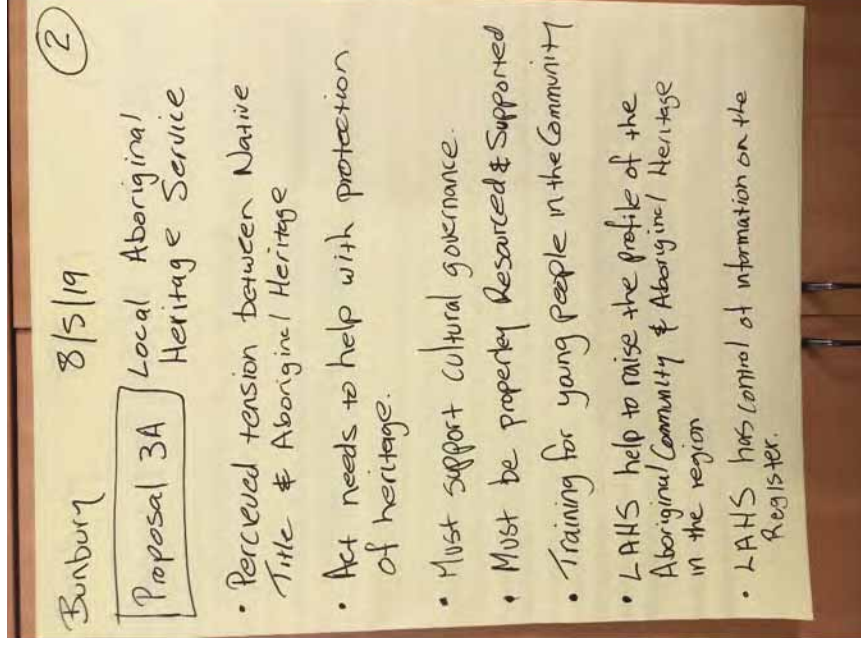 Bunbury 8/5/19 2
Proposal 3A Local Aboriginal
Heritage Service
• Percieved tension between Native
Title & Aboriginal Heritage
• Act needs to help with protection
of heritage.
• Must support cultural governance.
• Must be properley Resourced & Supported
• Training for young people in the Community
• LAHS help to raise the profile of the
Aboriginal Community & Aboriginal Heritage
in the region
• LAHS has control of information on the
Register.